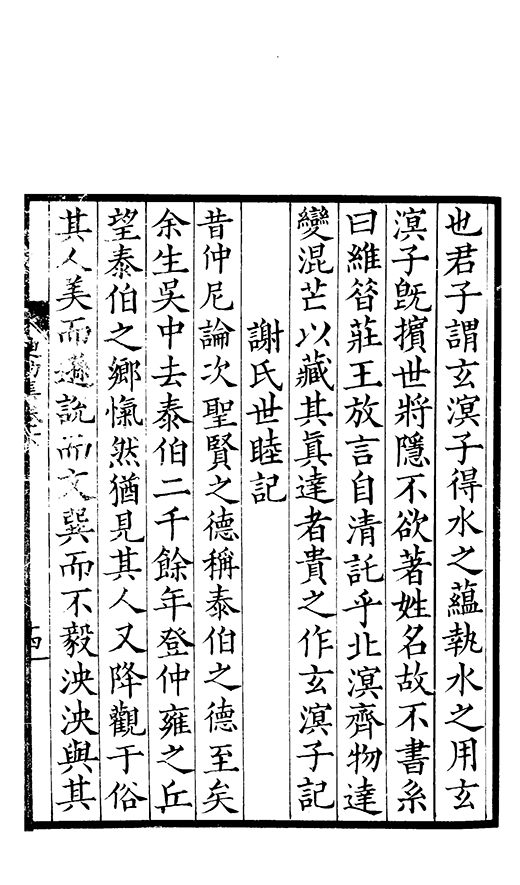 也君子謂玄溟子得水之蘊執水之用玄
溟子旣擯世將隱不欲著姓名故不書系
曰維昝莊王放言自清託乎北溟齊物達
變混芒以藏其眞達者貴之作玄溟子記
謝氏世睦記
昔仲尼論次聖賢之德稱泰伯之德至矣
余生吳中去泰伯二千餘年登仲雍之丘
望泰伯之鄉愾然猶見其人又降觀于俗
其人美而遜說而文巽而不毅泱泱與其